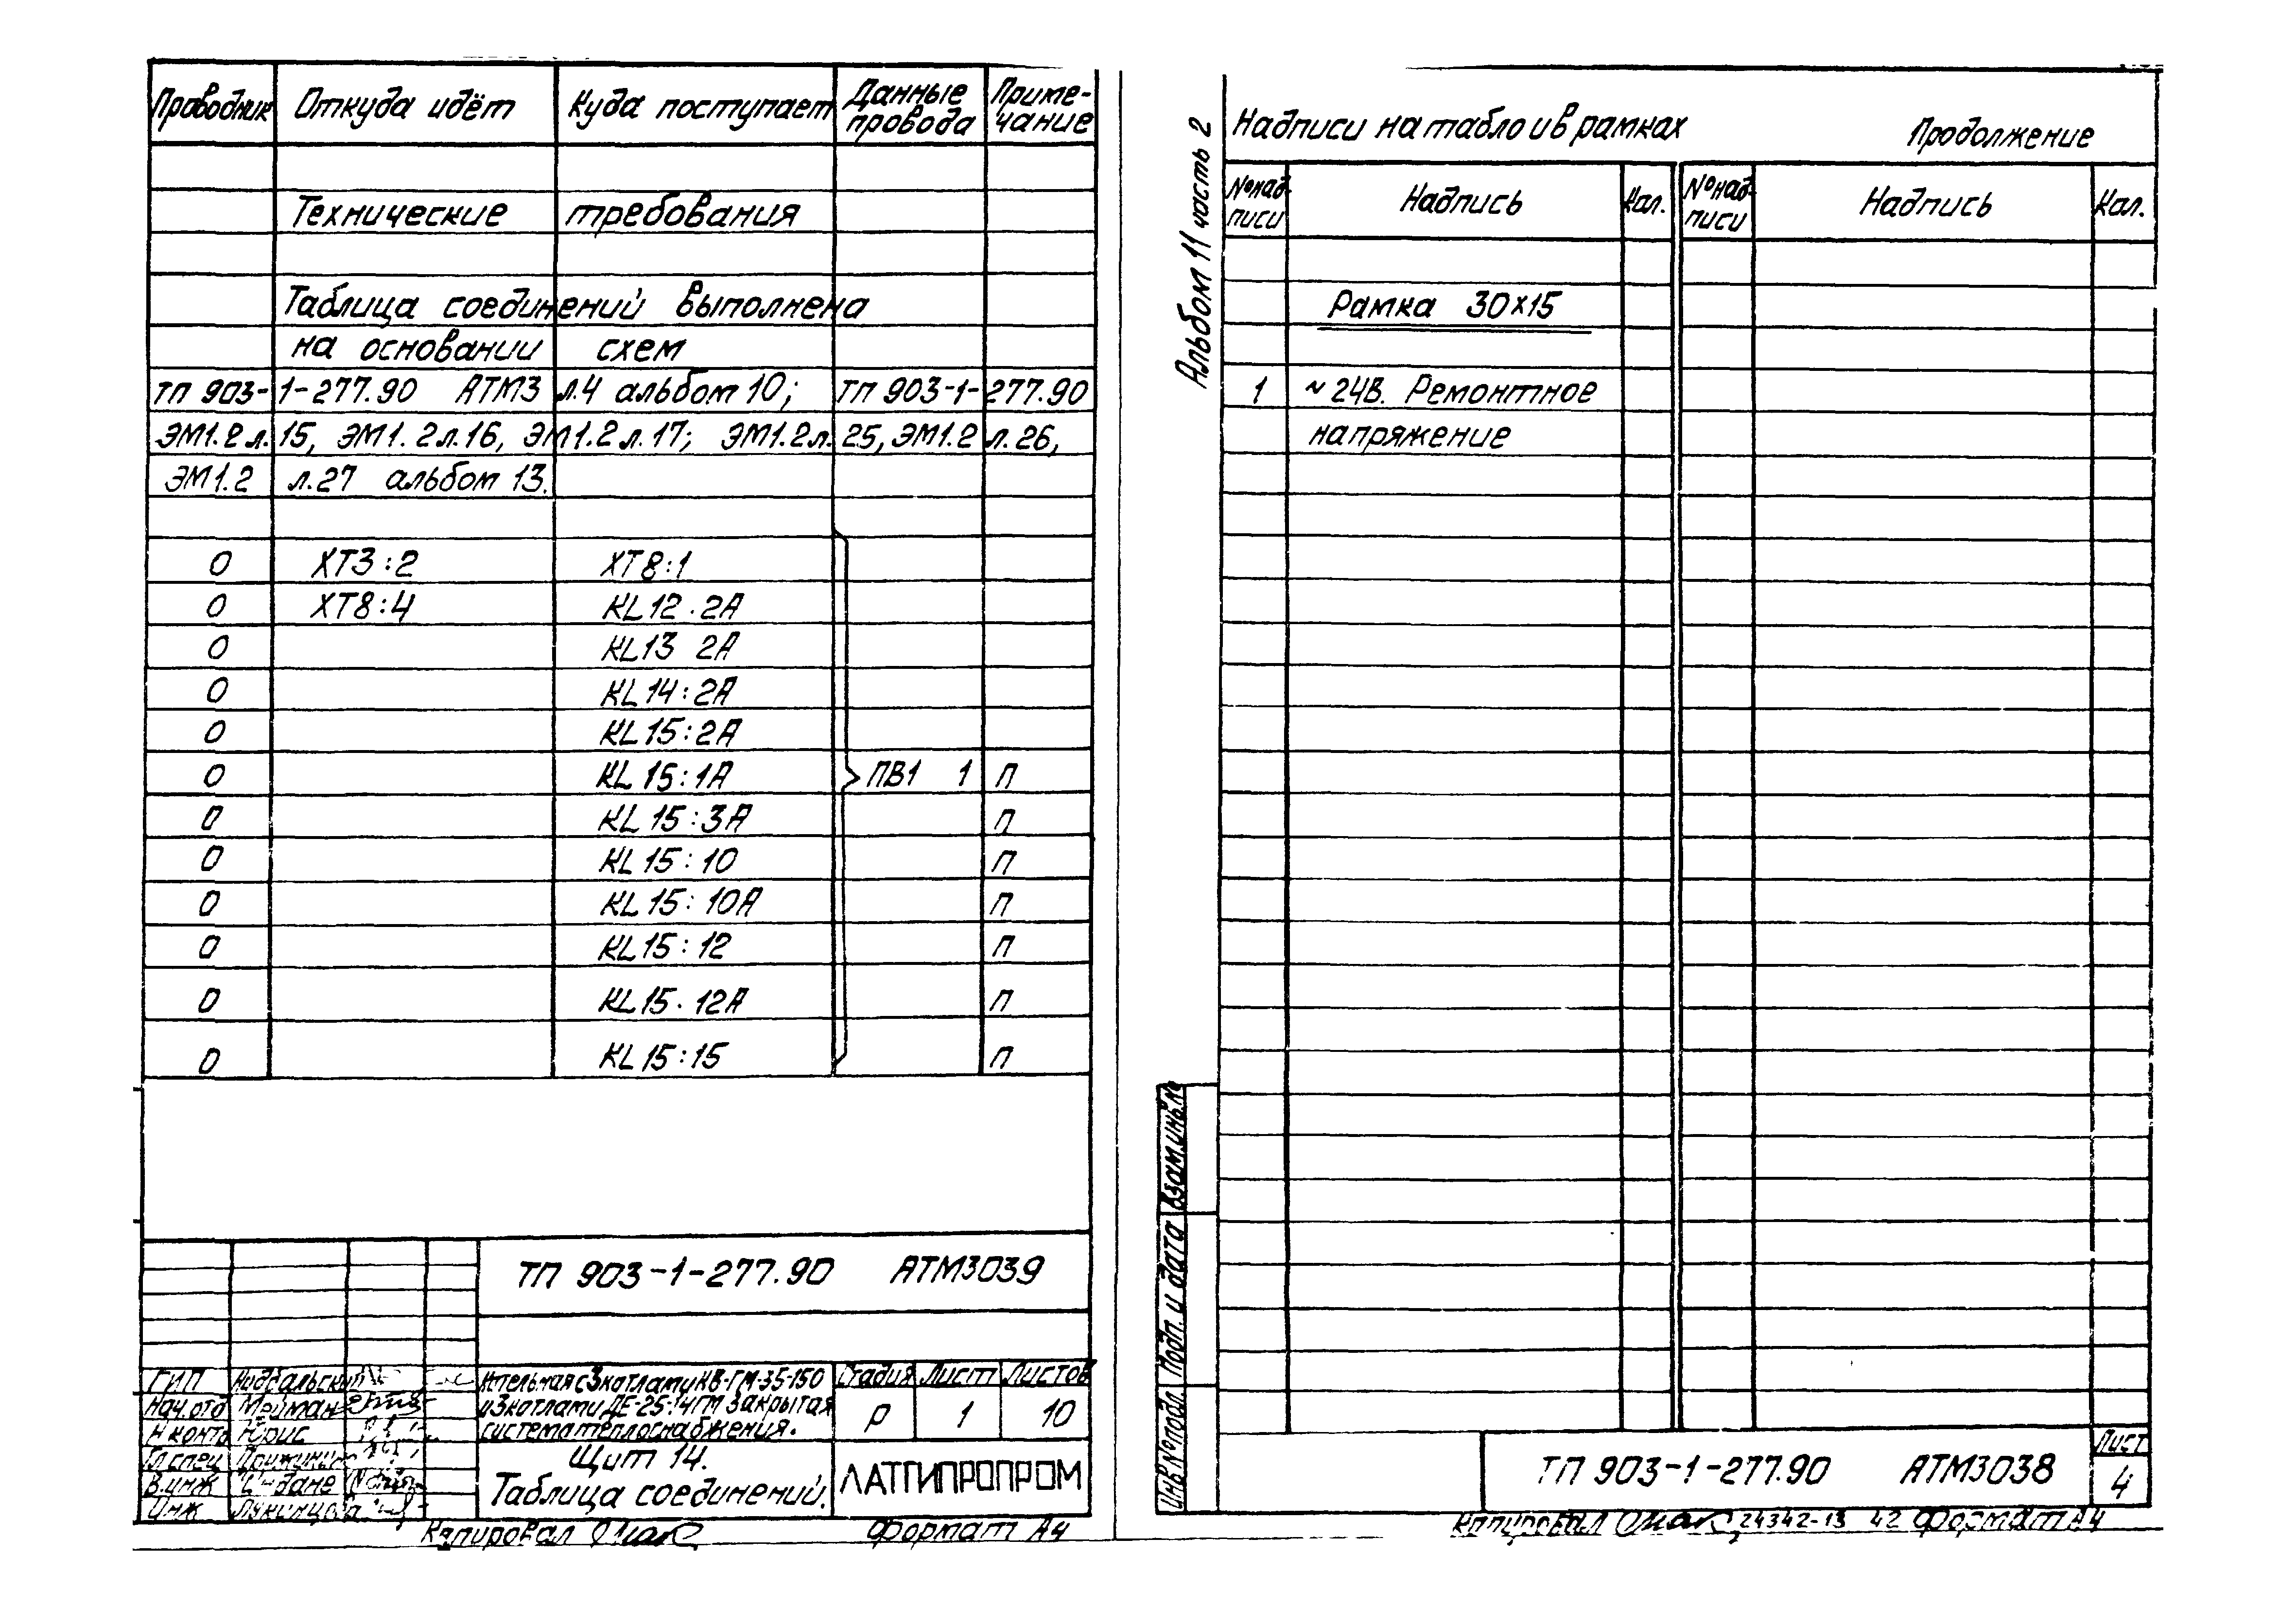 Проводник Откуда идёт Куда поступает Данные провода Приме-чание
Технические требования
Таблица соединений выполнена
на основании схем
ТП 903-1-277.90 АТМ3 л.4 альбом 10; ТП 903-1-277.90
ЭМ1.2 л.15, ЭМ1.2 л.16, ЭМ1.2 л.17; ЭМ1.2 л.25, ЭМ1.2 л.26,
ЭМ1.2 л.27 альбом 13.
0 XT3:2 XT8:1
0 XT8:4 KL12.2A
0 KL13 2A
0 KL14:2A
0 KL15:2A
0 KL15:1A ПВ1 1 П
0 KL15:3A П
0 KL15:10 П
0 KL15:10A П
0 KL15:12 П
0 KL15.12A П
0 KL15:15 П
ТП 903-1-277.90 АТМ3039
ГИП
Нач.отд Мейман
Н контр Юрис
Гл спец
В.инж
Инж
Котельная с 3 котлами КВ-ГМ-35-150
и 3 котлами ДЕ-25-14ГМ Закрытая
система теплоснабжения.
Стадия Лист Листов
Р 1 10
Щит 14.
Таблица соединений.
ЛАТГИПРОПРОМ
Копировал Формат А4
Альбом 11 часть 2
Надписи на табло и в рамках Продолжение
№ над-писи Надпись Кол. № над-писи Надпись Кол.
Рамка 30x15
1 ~24В. Ремонтное
напряжение
Взам.инв.№
Подп. и дата
Инв № подл.
ТП 903-1-277.90 АТМ3038
Лист
4
Копировал 24342-13 42 Формат А4